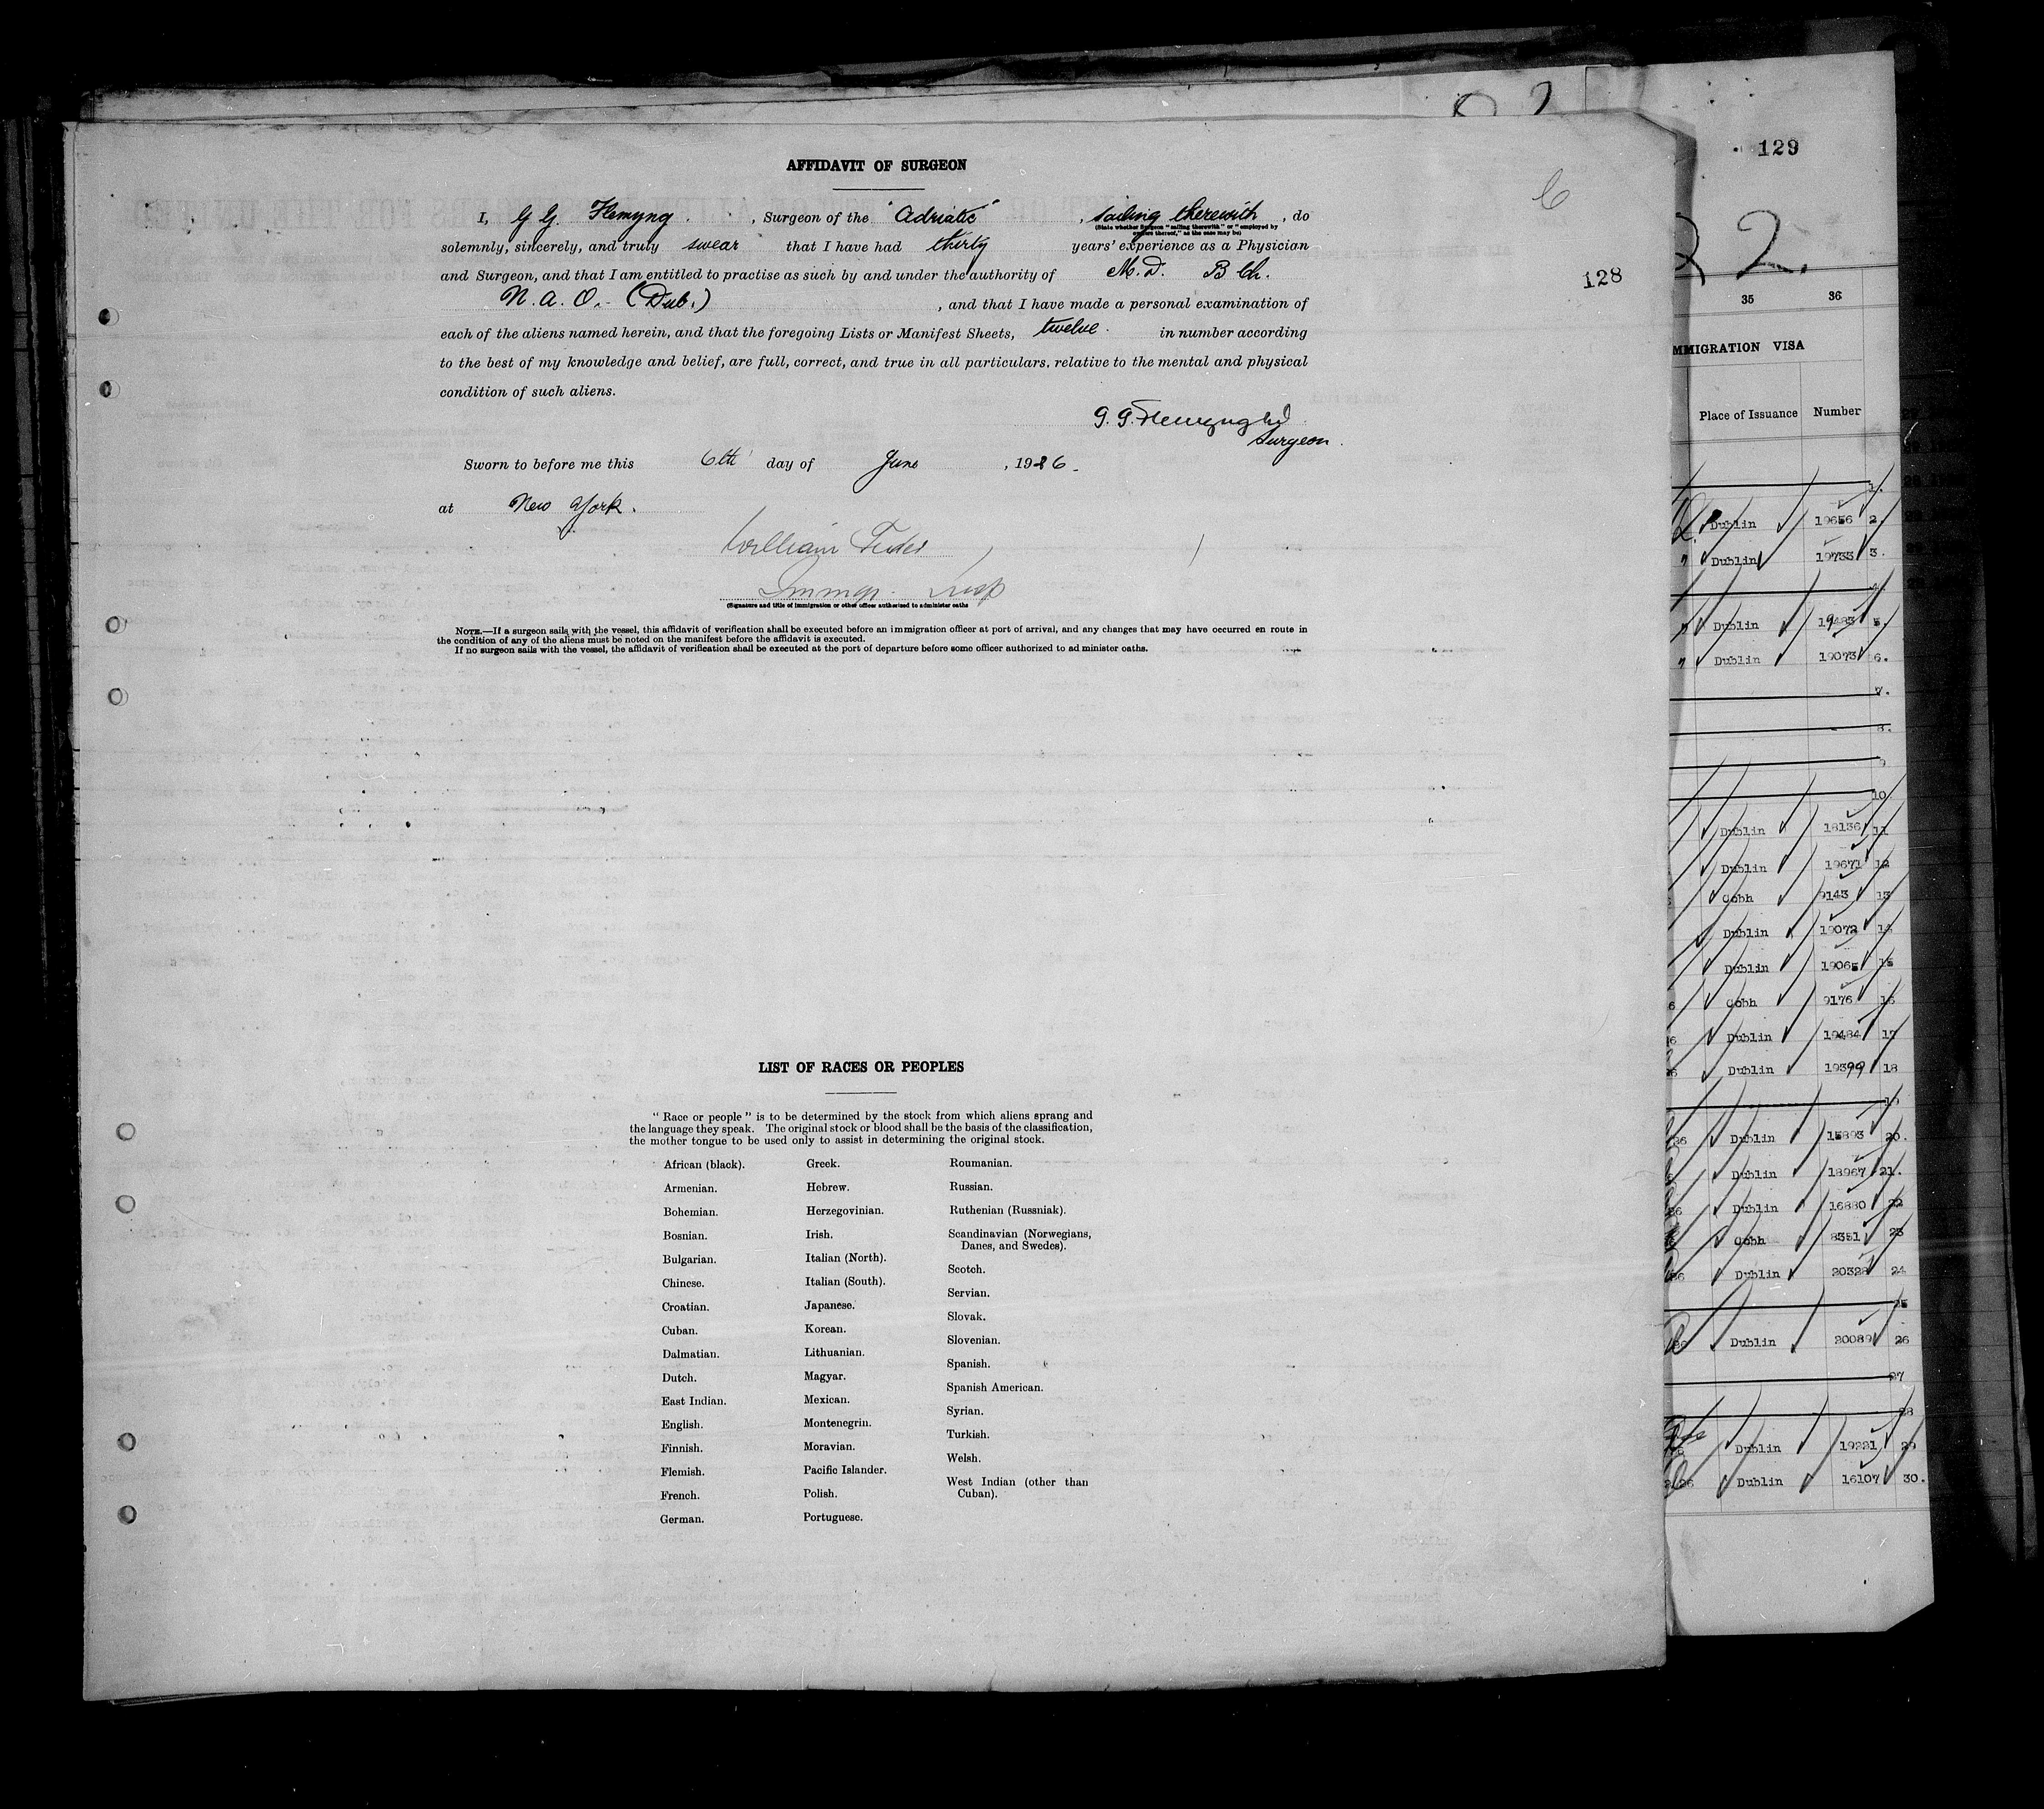 AFFIDAVIT OF SURGEON
6
I, G G. Flemyng. , Surgeon of the "Adriatic" , sailing therewith , do
(State whether Surgeon "sailing therewith" or "employed by
owners thereof," as the case may be)
solemnly, sincerely, and truly swear that I have had thirty years' experience as a Physician
and Surgeon, and that I am entitled to practise as such by and under the authority of M.D. B Ch.
N. A. O. - (Dub.) , and that I have made a personal examination of
each of the aliens named herein, and that the foregoing Lists or Manifest Sheets, twelve. in number according
to the best of my knowledge and belief, are full, correct, and true in all particulars, relative to the mental and physical
condition of such aliens.
G. G. Flemyng
Surgeon.
Sworn to before me this 6th day of June , 1926.
at New York.
William
Immgr. Insp
(Signature and title of immigration or other officer authorized to administer oaths
NOTE.—If a surgeon sails with the vessel, this affidavit of verification shall be executed before an immigration officer at port of arrival, and any changes that may have occurred en route in
the condition of any of the aliens must be noted on the manifest before the affidavit is executed.
If no surgeon sails with the vessel, the affidavit of verification shall be executed at the port of departure before some officer authorized to administer oaths.
128
LIST OF RACES OR PEOPLES
"Race or people" is to be determined by the stock from which aliens sprang and
the language they speak. The original stock or blood shall be the basis of the classification,
the mother tongue to be used only to assist in determining the original stock.
African (black).
Armenian.
Bohemian.
Bosnian.
Bulgarian.
Chinese.
Croatian.
Cuban.
Dalmatian.
Dutch.
East Indian.
English.
Finnish.
Flemish.
French.
German.
Greek.
Hebrew.
Herzegovinian.
Irish.
Italian (North).
Italian (South).
Japanese.
Korean.
Lithuanian.
Magyar.
Mexican.
Montenegrin.
Moravian.
Pacific Islander.
Polish.
Portuguese.
Roumanian.
Russian.
Ruthenian (Russniak).
Scandinavian (Norwegians,
Danes, and Swedes).
Scotch.
Servian.
Slovak.
Slovenian.
Spanish.
Spanish American.
Syrian.
Turkish.
Welsh.
West Indian (other than
Cuban).
129
2.
35 36
MMIGRATION VISA
Place of Issuance Number
1.
Dublin 19656 2.
" Dublin 19733 3.
4.
" Dublin 19483 5.
" Dublin 19073 6.
7.
8.
9
10
Dublin 18136 11
Dublin 19671 12
Cobh 9143 13
Dublin 19072 14
Dublin 19065 15
Cobh 9176 16
Dublin 19484 17
Dublin 19399 18
19
Dublin 15893 20.
Dublin 18967 21.
Dublin 16880 22
Cobh 8351 23
Dublin 20328 24
25
Dublin 20089 26
27
28
Dublin 19221 29
Dublin 16107 30.